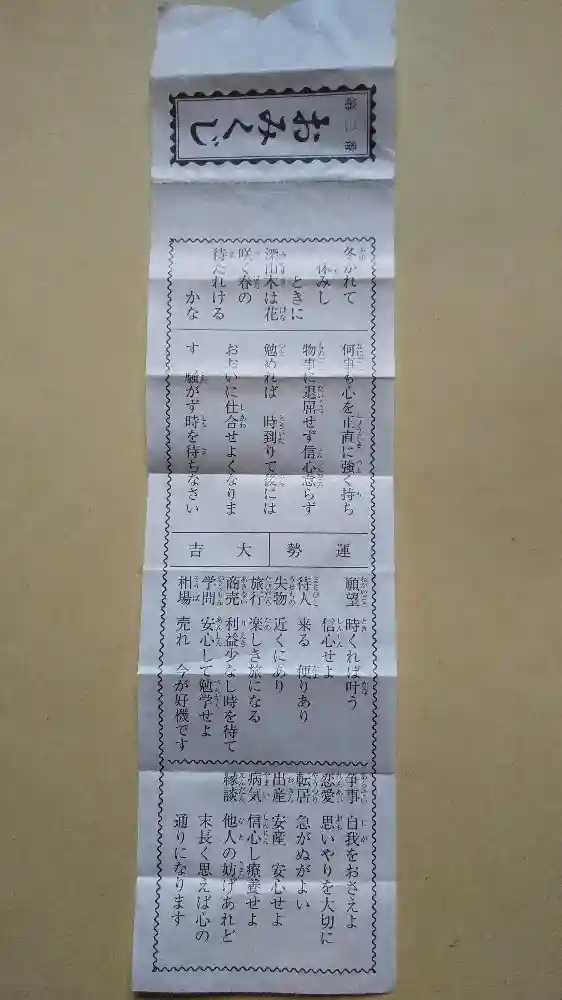 第三番
おみくじ
冬かれて
休みし
ときに
深山木は花
咲く春の
待たれける
かな
何事も心を正直に強く持ち
物事に退屈せず信心怠らず
勉めれば 時到りて後には
おおいに仕合せよくなりま
す 騒がず時を待ちなさい
運勢 大吉
願望 時くれば叶う
信心せよ
待人 来る 便りあり
失物 近くにあり
旅行 楽しき旅になる
商売 利益少なし時を待て
学問 安心して勉学せよ
相場 売れ 今が好機です
争事 自我をおさえよ
恋愛 思いやりを大切に
転居 急がぬがよい
出産 安産 安心せよ
病気 信心し療養せよ
縁談 他人の妨げあれど
末長く思えば心の
通りになります